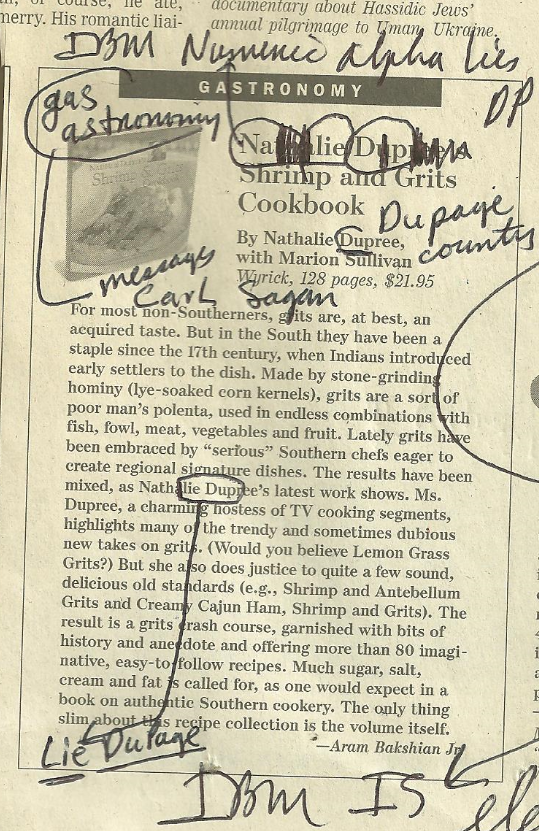 documentary about Hassidic Jews'
merry. His romantic liai-
annual pilgrimage to Uman, Ukraine.
IBM Numeric alpha lies
GASTRONOMY
DP
gas
astronomy
Nathalie Dupree's
Shrimp and Grits
Cookbook
Dupage
county
By Nathalie Dupree,
with Marion Sullivan
Wyrick, 128 pages, $21.95
message
Carl Sagan
For most non-Southerners, grits are, at best, an
acquired taste. But in the South they have been a
staple since the 17th century, when Indians introduced
early settlers to the dish. Made by stone-grinding
hominy (lye-soaked corn kernels), grits are a sort of
poor man's polenta, used in endless combinations with
fish, fowl, meat, vegetables and fruit. Lately grits have
been embraced by "serious" Southern chefs eager to
create regional signature dishes. The results have been
mixed, as Nathalie Dupree's latest work shows. Ms.
Dupree, a charming hostess of TV cooking segments,
highlights many of the trendy and sometimes dubious
new takes on grits. (Would you believe Lemon Grass
Grits?) But she also does justice to quite a few sound,
delicious old standards (e.g., Shrimp and Antebellum
Grits and Creamy Cajun Ham, Shrimp and Grits). The
result is a grits crash course, garnished with bits of
history and anecdote and offering more than 80 imagi-
native, easy-to-follow recipes. Much sugar, salt,
cream and fat is called for, as one would expect in a
book on authentic Southern cookery. The only thing
slim about this recipe collection is the volume itself.
—Aram Bakshian Jr.
Lie DuPage
IBM IS